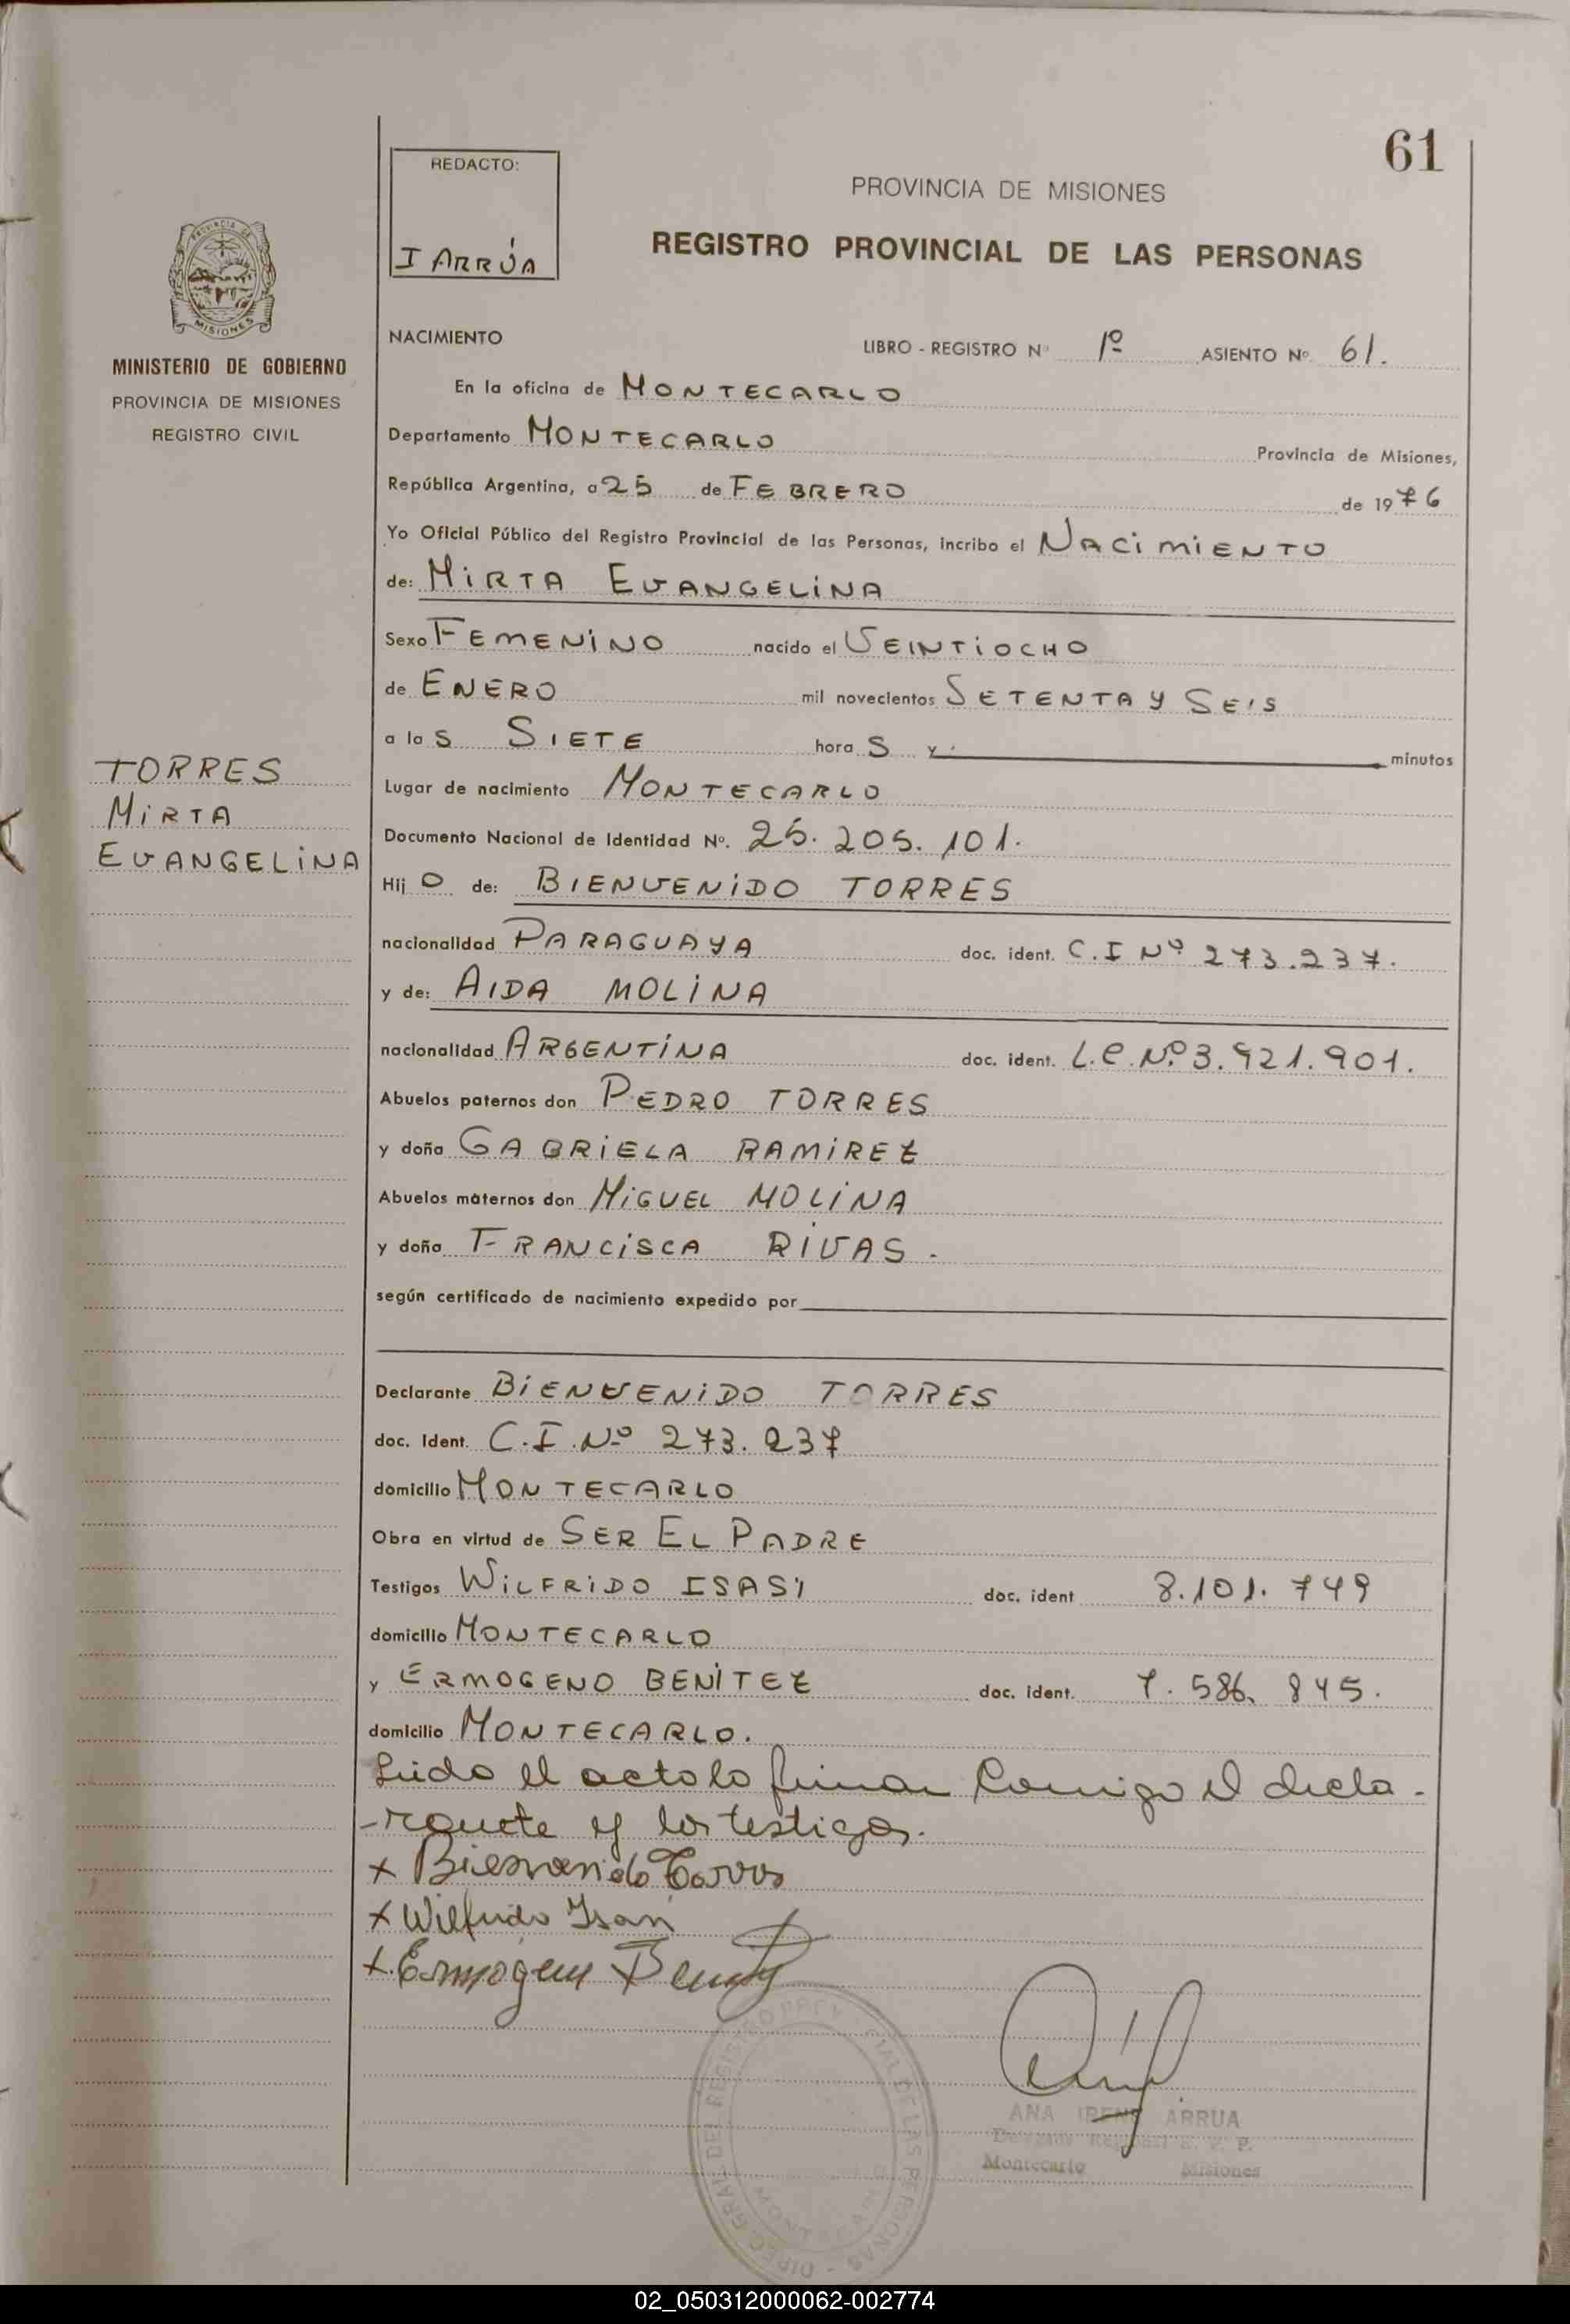 61
REDACTO:
I ARRÚA
PROVINCIA DE MISIONES
REGISTRO PROVINCIAL DE LAS PERSONAS
PROVINCIA DE
MISIONES
MINISTERIO DE GOBIERNO
PROVINCIA DE MISIONES
REGISTRO CIVIL
TORRES
MIRTA
EVANGELINA
NACIMIENTO LIBRO - REGISTRO Nº 1º ASIENTO Nº 61.
En la oficina de MONTECARLO
Departamento MONTECARLO Provincia de Misiones,
República Argentina, a 25 de FEBRERO de 1976
Yo Oficial Público del Registro Provincial de las Personas, incribo el NACIMIENTO
de: MIRTA EVANGELINA
Sexo FEMENINO nacido el VEINTIOCHO
de ENERO mil novecientos SETENTA Y SEIS
a las SIETE horas y minutos
Lugar de nacimiento MONTECARLO
Documento Nacional de Identidad Nº. 25.205.101.
Hijo de: BIENVENIDO TORRES
nacionalidad PARAGUAYA doc. ident. C.I Nº 273.237.
y de: AIDA MOLINA
nacionalidad ARGENTINA doc. ident. L.C. Nº 3.921.901.
Abuelos paternos don PEDRO TORRES
y doña GABRIELA RAMIREZ
Abuelos maternos don MIGUEL MOLINA
y doña FRANCISCA RIVAS.
según certificado de nacimiento expedido por
Declarante BIENVENIDO TORRES
doc. Ident. C.I. Nº 273.237
domicilio MONTECARLO
Obra en virtud de SER EL PADRE
Testigos WILFRIDO ISASI doc. ident 8.101.749
domicilio MONTECARLO
y ERMOGENO BENITEZ doc. ident. 7.586.845.
domicilio MONTECARLO.
Leido el acto lo firman Conmigo el decla-
-rante y los testigos.
x Bienvenido Torres
x Wilfrido Isasi
x Ermogeno Benitez
ANA IRENE ARRUA
Montecarlo Misiones
02_050312000062-002774